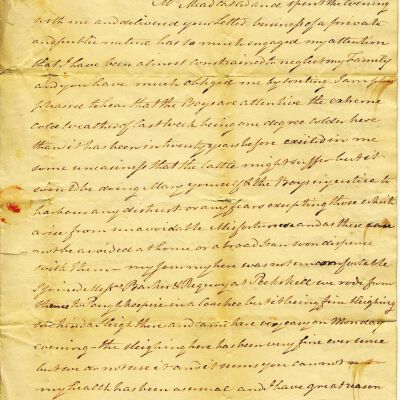 and spent the evening
with me and delivered your letter. business of a private
and public nature has so much engaged my attention
that I have been almost constrained to neglect my Family
and you have much obliged me by writing I am
pleased to hear that the Boys are attentive the extreme
cold weather of last week being one degree colder here
than it has been in twenty years before excited in me
some uneasiness that the cattle might suffer but it
would be doing Mary yourself & the Boys injustice to
harbour any distrust or any fears excepting those which
arise from unavoidable Misfortunes and as these can
not be avoided at home or abroad I can dispence
with them — my Journey here was not uncomfortable
I joined Mess. Barker & at Peekskill we rode from
thence to in a Coachee but it being fine Sleighing
we hired a sleigh there and came here very easy on Monday
evening — the sleighing here has been very fine ever since
but we do not use it and it seems you cannot
my health has been as usual and I have great reason